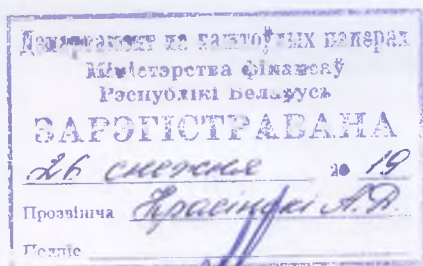 Дэпартамент па каштоўных паперах
Міністэрства фінансаў
Рэспублікі Беларусь
ЗАРЭГІСТРАВАНА
26 снежня 2019
Прозвішча Красінскі А.Д.
Подпіс